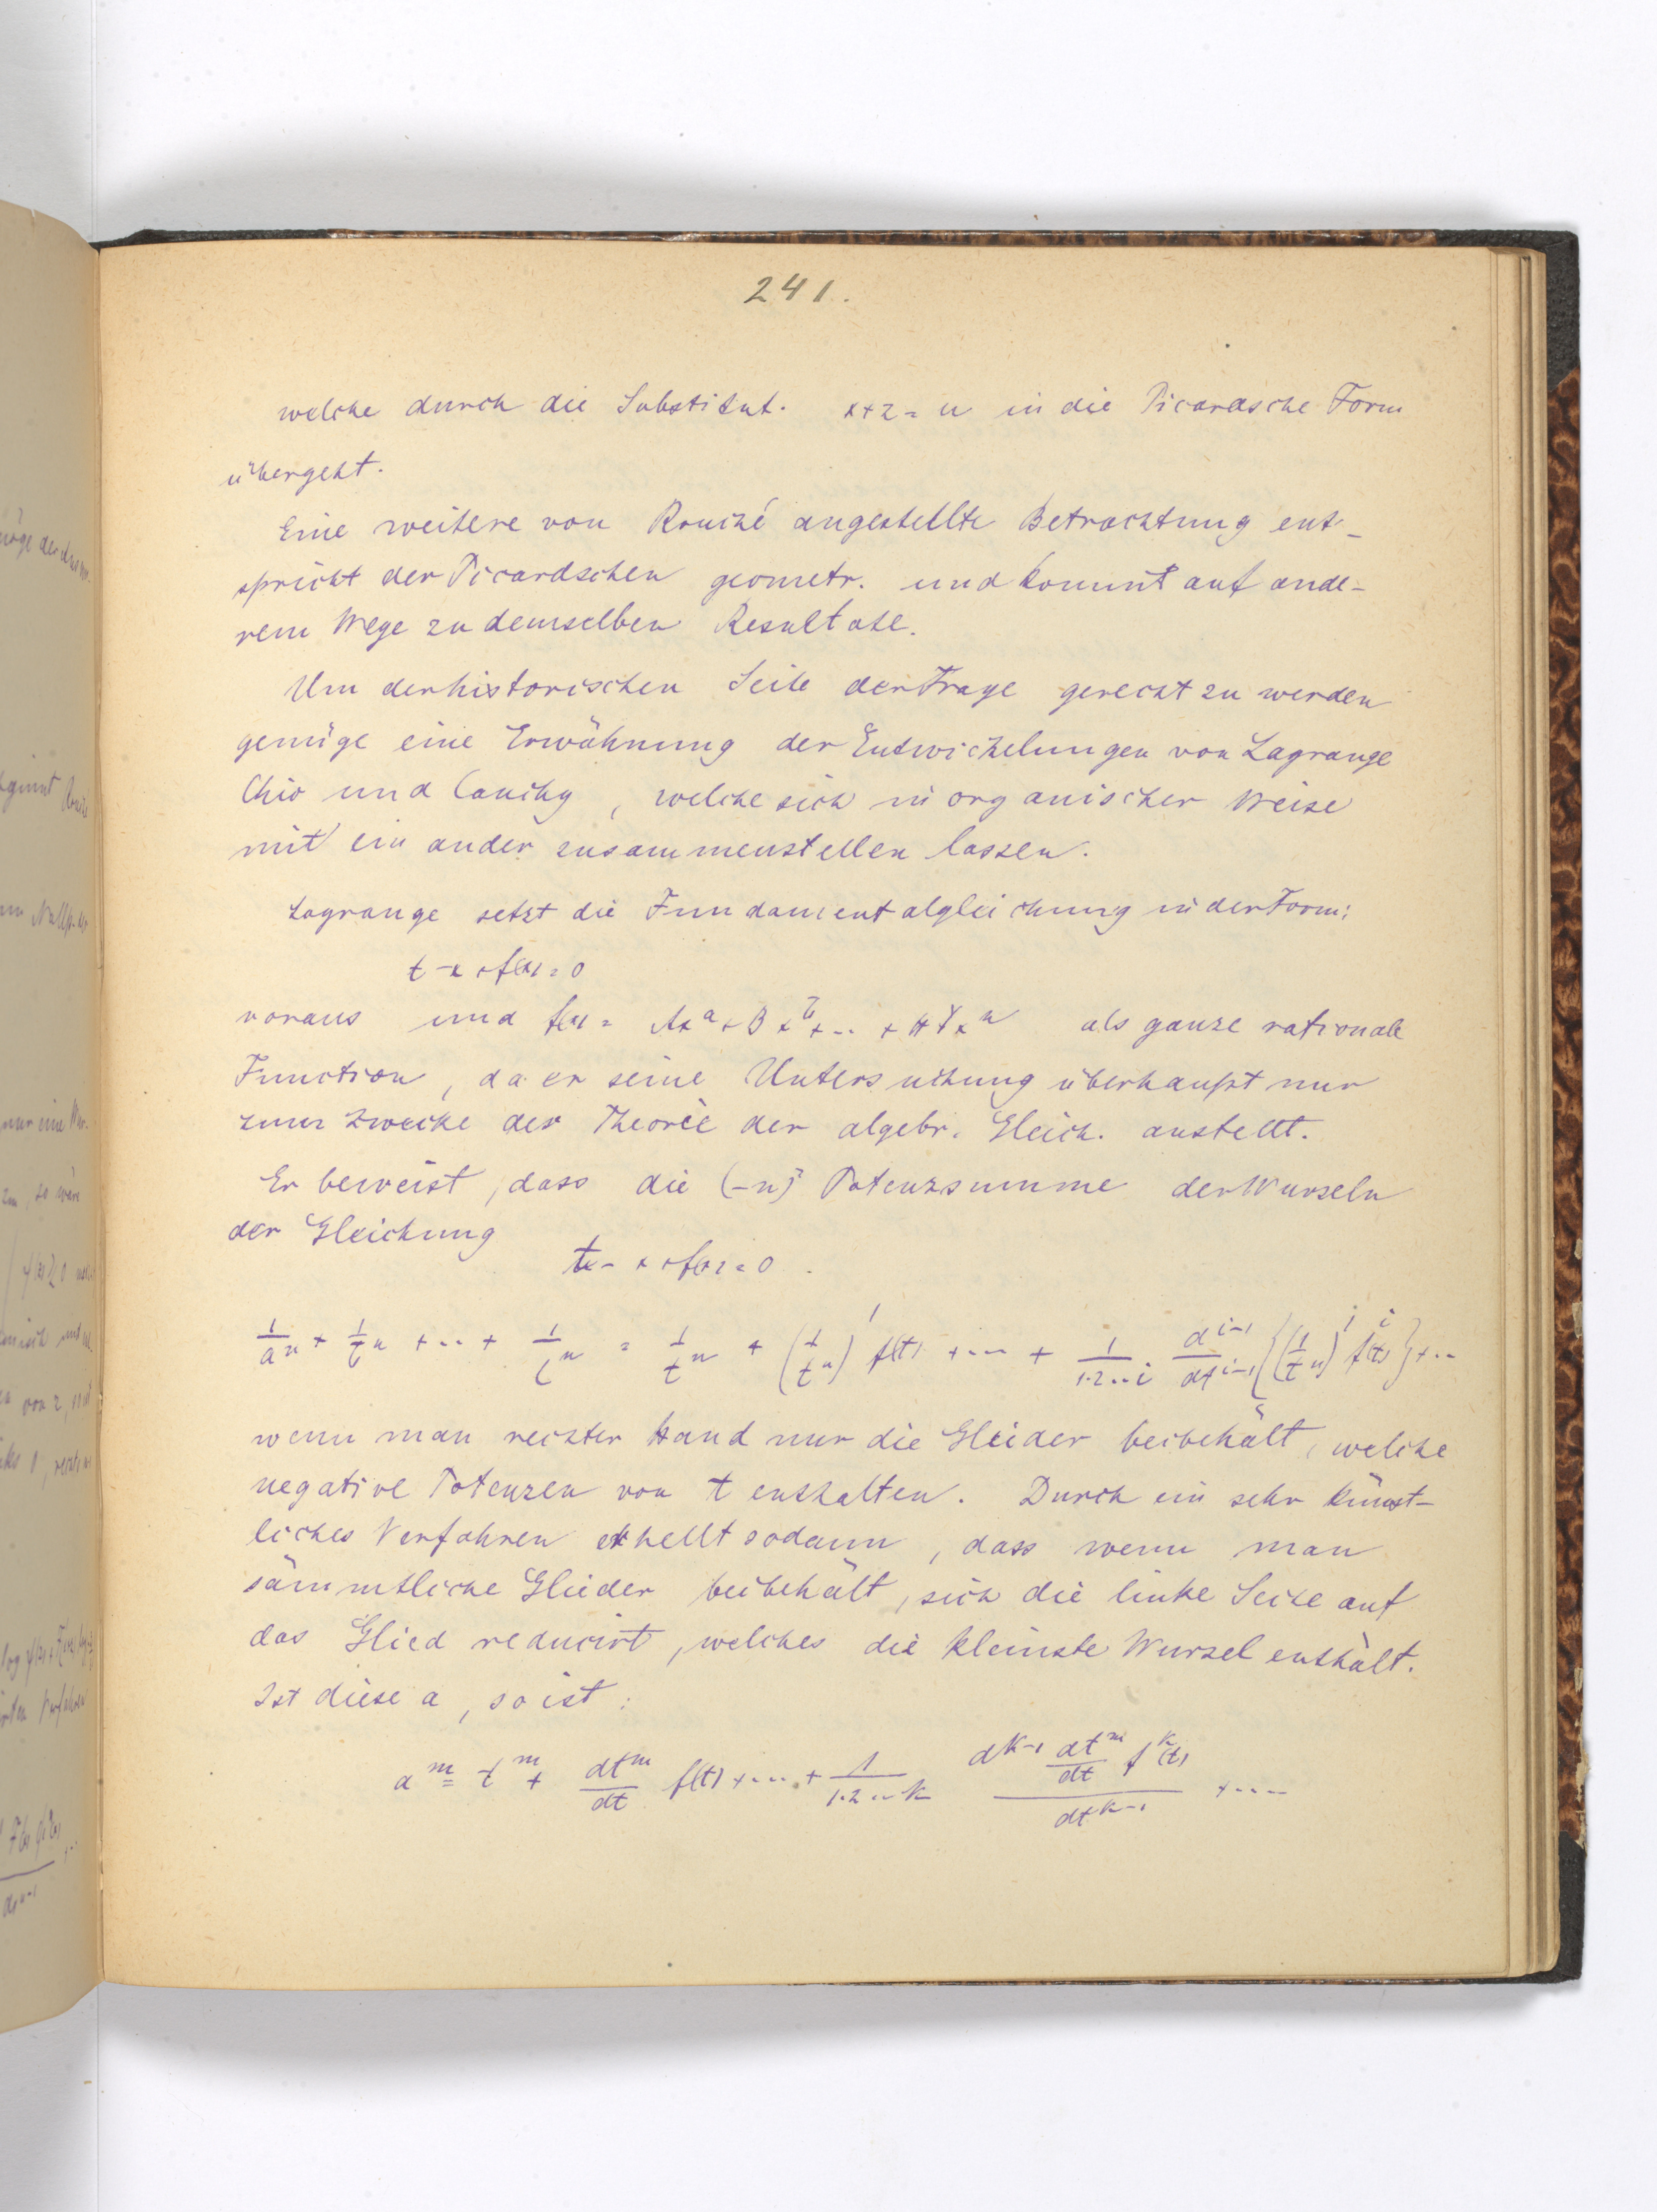 241.
welche durch die Substitut. x+z = u in die Picardsche Form
übergeht.
Eine weitere von Rouché angestellte Betrachtung ent-
spricht der Picardschen geometr. und kommt auf ande-
rem Wege zu demselben Resultate.
Um der historischen Seite der Frage gerecht zu werden
genüge eine Erwähnung der Entwickelungen von Lagrange
Chio und Cauchy, welche sich in organischer Weise
mit ein ander zusammenstellen lassen.
Lagrange setzt die Fundamentalgleichung in der Form:
t - x + f(x) = 0
voraus und f(x) = Ax^a + Bx^b + .. + x^n als ganze rationale
Function, da er seine Untersuchung überhaupt nur
zum Zwecke der Theorie der algebr. Gleich. anstellt.
Er beweist, dass die (-n)^te Potenzsumme der Wurzeln
der Gleichung
t - x + f(x) = 0.
1/a^n + 1/b^n + ... + 1/l^n = 1/t^n + (1/t^n)' f(t) + ... + 1/1.2...i d^{i-1}/dt^{i-1} {(1/t^n)' f^i(t)} + ..
wenn man rechter Hand nur die Glieder beibehält, welche
negative Potenzen von t enthalten. Durch ein sehr künst-
liches Verfahren erhellt sodann, dass wenn man
sämmtliche Glieder beibehält, sich die linke Seite auf
das Glied reducirt, welches die kleinste Wurzel enthält.
Ist diese a, so ist:
a^m = t^m + dt^m/dt f(t) + ... + 1/1.2...k d^{k-1} dt^m/dt f^k(t) / dt^{k-1} + ....